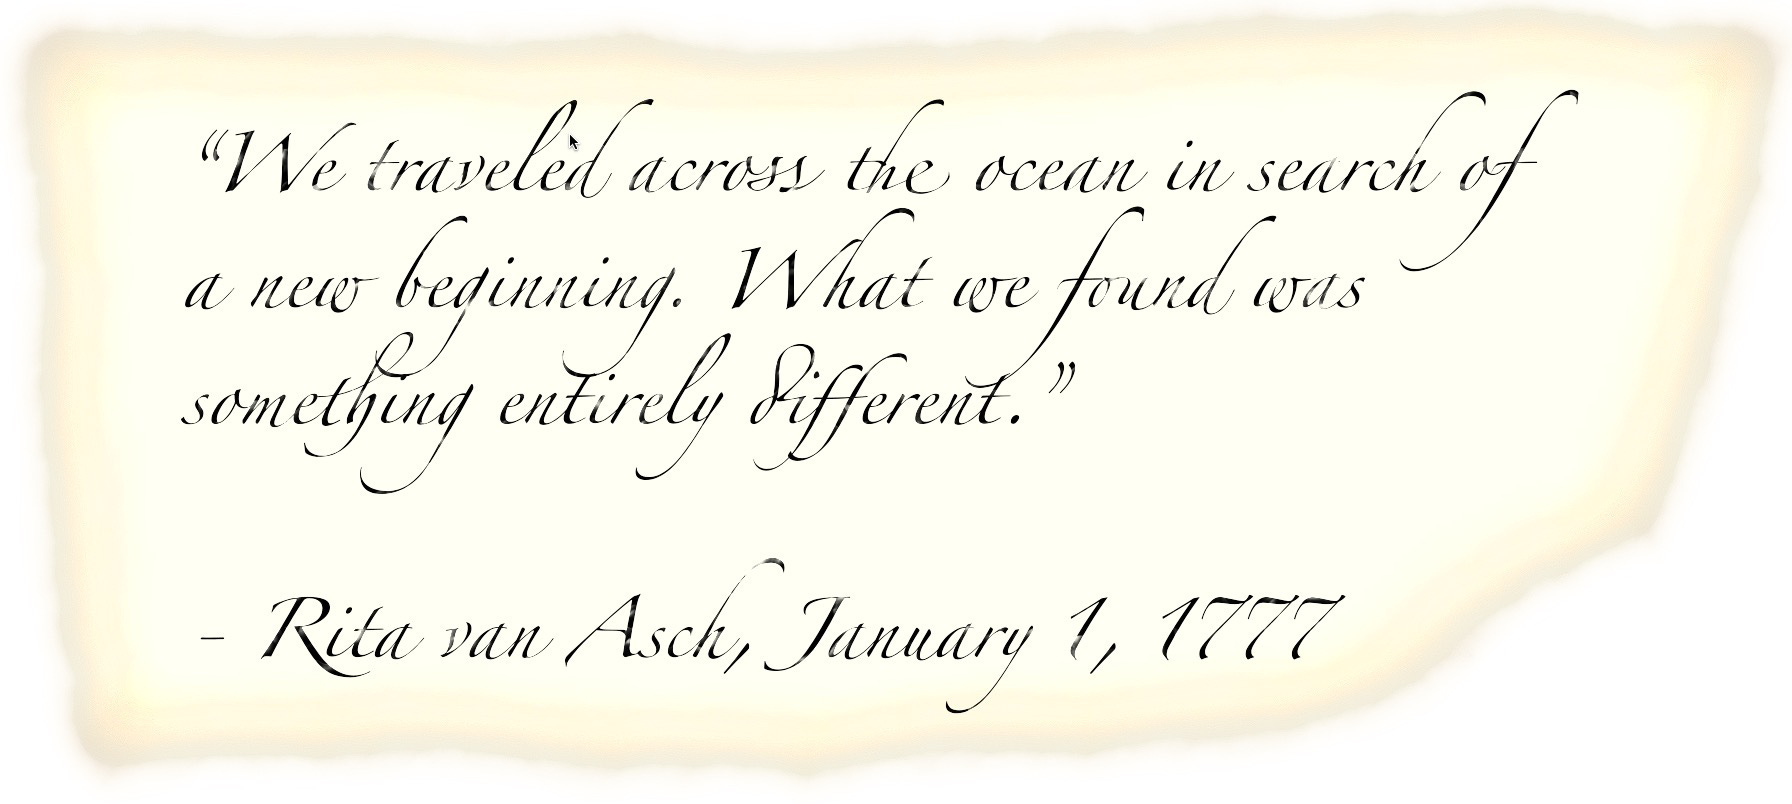 “We traveled across the ocean in search of
a new beginning. What we found was
something entirely different.”
- Rita van Asch, January 1, 1777